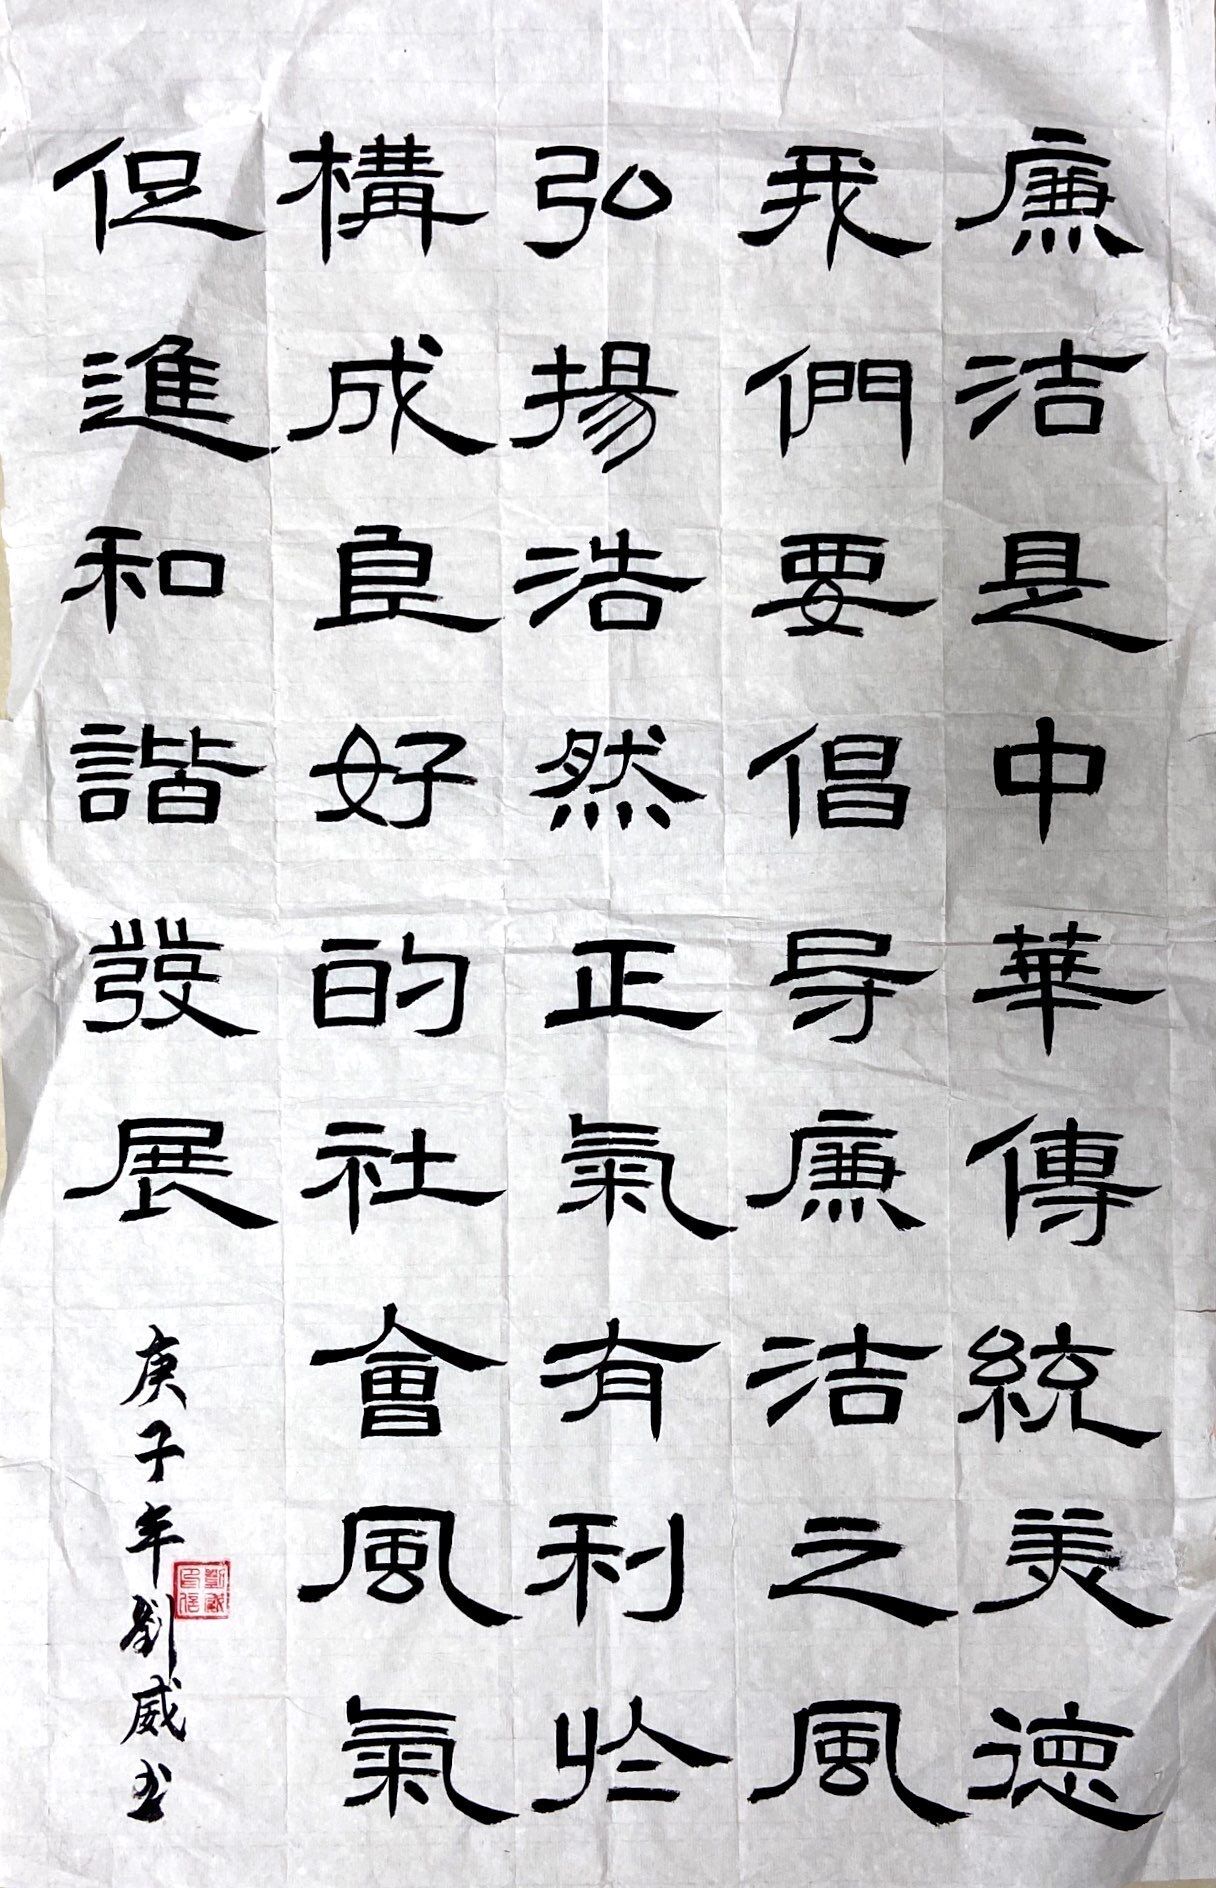 廉洁是中華傳統美德
我們要倡导廉洁之風
弘揚浩然正氣有利於
構成良好的社會風氣
促進和諧發展
庚子年劉威书